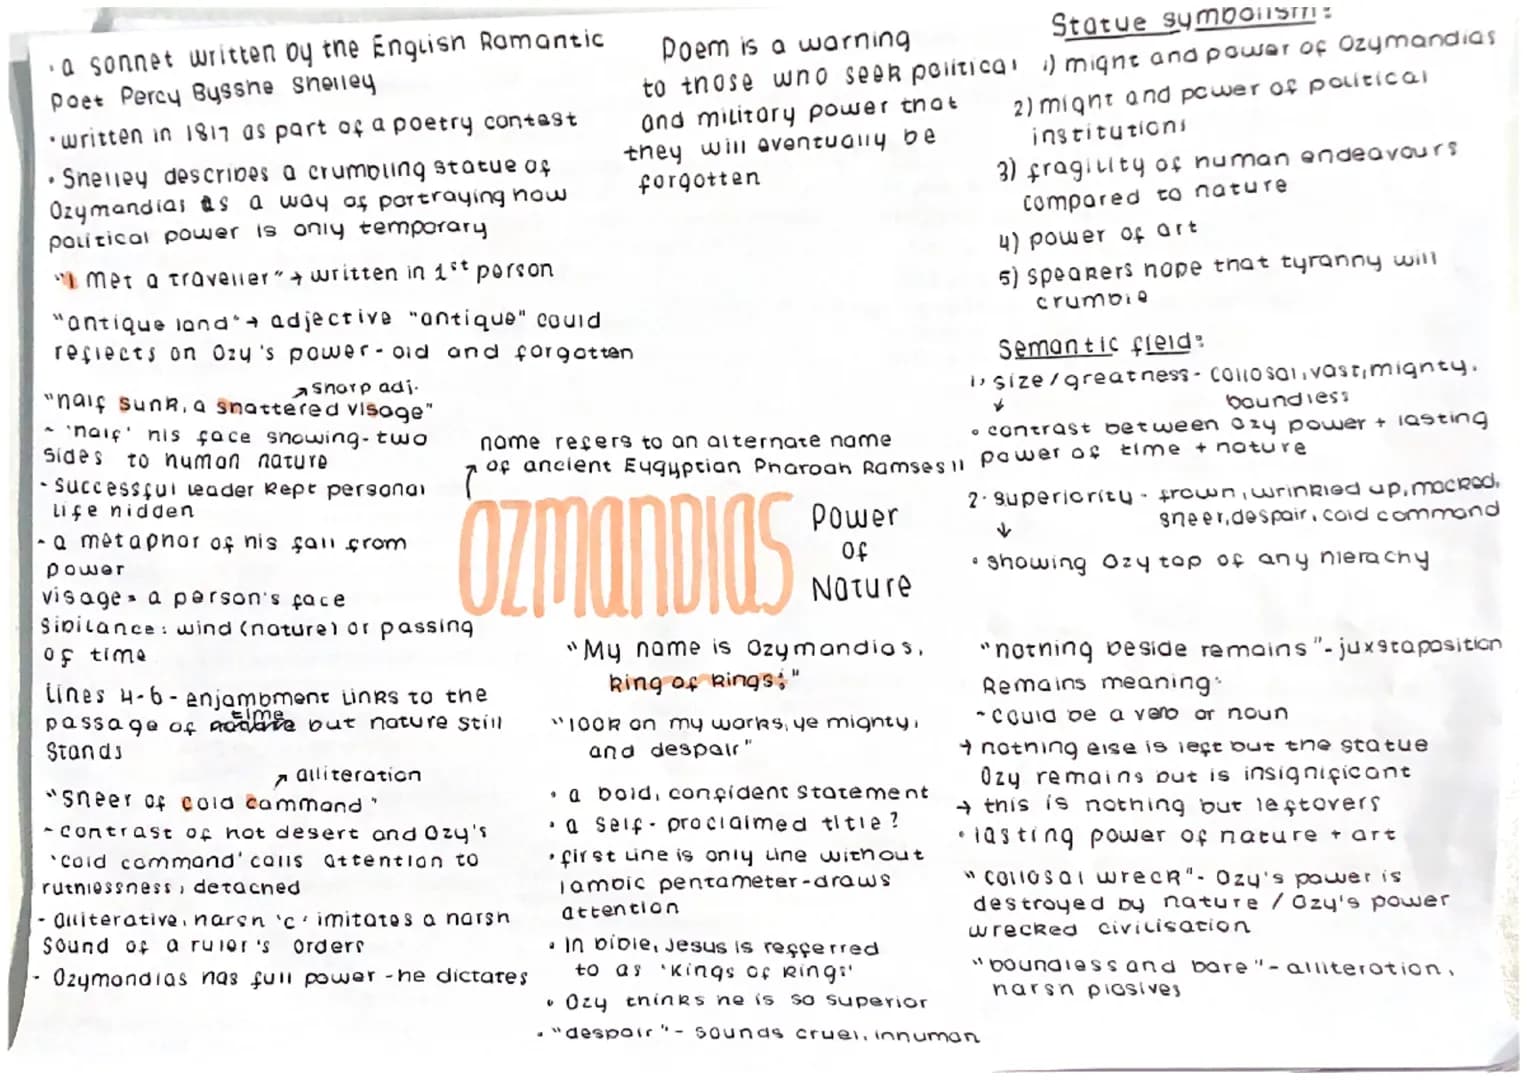 · a sonnet written by the English Romantic
Poet Percy Bysshe Shelley
· written in 1817 as part of a poetry contest
· Shelley describes a crumbling statue of
Ozymandias as a way of portraying how
political power is only temporary
"I met a traveller" → written in 1st person
"antique land" → adjective "antique" could
reflects on Ozy's power - old and forgotten
↗ sharp adj.
"half sunk, a shattered visage"
~ 'half' his face showing - two
sides to human nature
- successful leader kept personal
life hidden
- a metaphor of his fall from
power
visage = a person's face
Sibilance: wind (nature) or passing
of time
Lines 4-6 - enjambment links to the
time
passage of nature but nature still
stands
↗ alliteration
"sneer of cold command"
~ contrast of hot desert and Ozy's
'cold command' calls attention to
ruthlessness, detached
- alliterative, harsh 'c' imitates a harsh
sound of a ruler's orders
- Ozymandias has full power - he dictates
Poem is a warning
to those who seek political
and military power that
they will eventually be
forgotten
name refers to an alternate name
↗ of ancient Eygyptian Pharoah Ramses II
OZMANDIAS
Power
of
Nature
"My name is Ozymandias,
king of kings;"
"look on my works, ye mighty,
and despair"
· a bold, confident statement
· a self-proclaimed title?
· first line is only line without
iambic pentameter - draws
attention
· In bible, Jesus is refferred
to as 'Kings of Kings'
· Ozy thinks he is so superior
· "despair" - sounds cruel, inhuman
Statue symbolism:
1) might and power of Ozymandias
2) might and power of political
institutions
3) fragility of human endeavours
compared to nature
4) power of art
5) speakers hope that tyranny will
crumble
Semantic field:
1, size/greatness - collosal, vast, mighty,
boundless
↓
· contrast between Ozy power + lasting
power of time + nature
2. superiority - frown, wrinkled up, mocked,
sneer, despair, cold command
↓
· showing Ozy top of any hierachy
"nothing beside remains" - juxstaposition
Remains meaning:
~ could be a verb or noun
→ nothing else is left but the statue
Ozy remains but is insignificant
→ this is nothing but leftovers
· lasting power of nature + art
"collosal wreck" - Ozy's power is
destroyed by nature / Ozy's power
wrecked civilisation
"boundless and bare" - alliteration,
harsh plosives